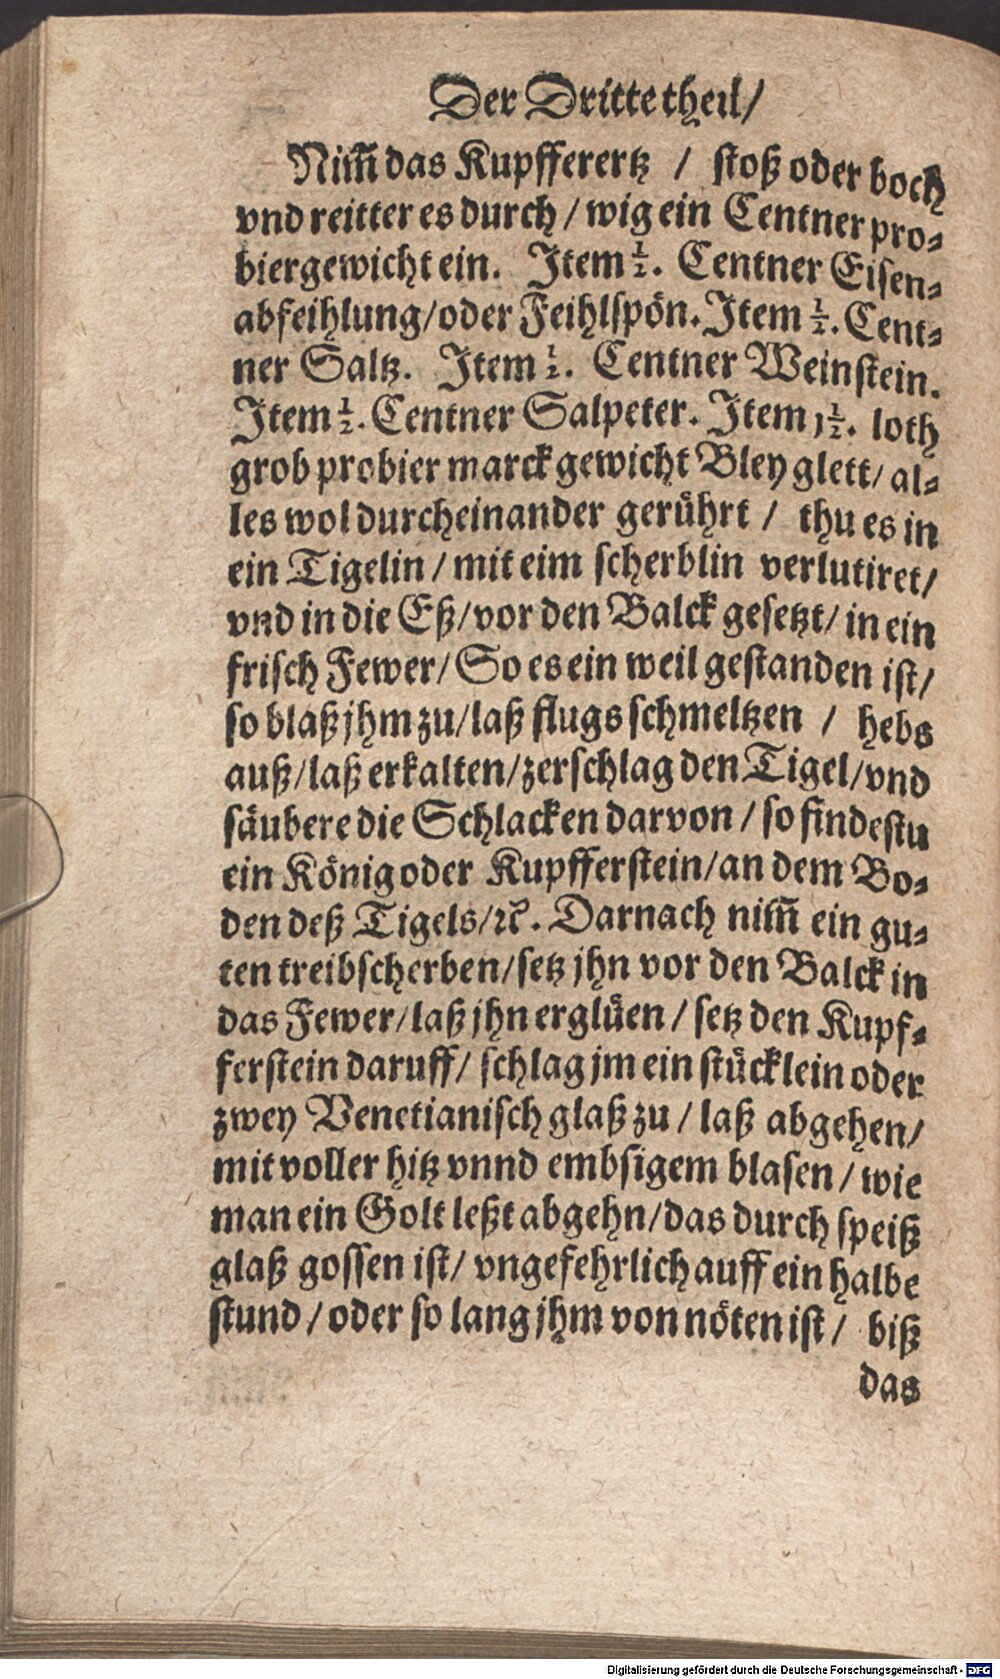 Der Dritte theil/
Nim̃ das Kupfferertz / stoß oder boch
vnd reitter es durch / wig ein Centner pro⸗
biergewicht ein. Item ½. Centner Eisen⸗
abfeihlung/oder Feihlspön. Item ½. Cent⸗
ner Saltz. Item ½. Centner Weinstein.
Item ½. Centner Salpeter. Item 1½. loth
grob probier marck gewicht Bley glett/ al⸗
les wol durcheinander gerührt / thu es in
ein Tigelin / mit eim scherblin verlutiret/
vnd in die Eß/vor den Balck gesetzt/ in ein
frisch Fewer/ So es ein weil gestanden ist/
so blaß jhm zu/laß flugs schmeltzen / hebs
auß/laß erkalten/zerschlag den Tigel/vnd
säubere die Schlacken darvon / so findestu
ein König oder Kupfferstein/an dem Bo⸗
den deß Tigels/ꝛc̃. Darnach nim̃ ein gu⸗
ten treibscherben/setz jhn vor den Balck in
das Fewer/laß jhn erglüen / setz den Kupf⸗
ferstein daruff/ schlag jm ein stücklein oder
zwey Venetianisch glaß zu / laß abgehen/
mit voller hitz vnnd embsigem blasen / wie
man ein Golt leßt abgehn/das durch speiß
glaß gossen ist/ vngefehrlich auff ein halbe
stund / oder so lang jhm von nöten ist / biß
das
Digitalisierung gefördert durch die Deutsche Forschungsgemeinschaft - DFG